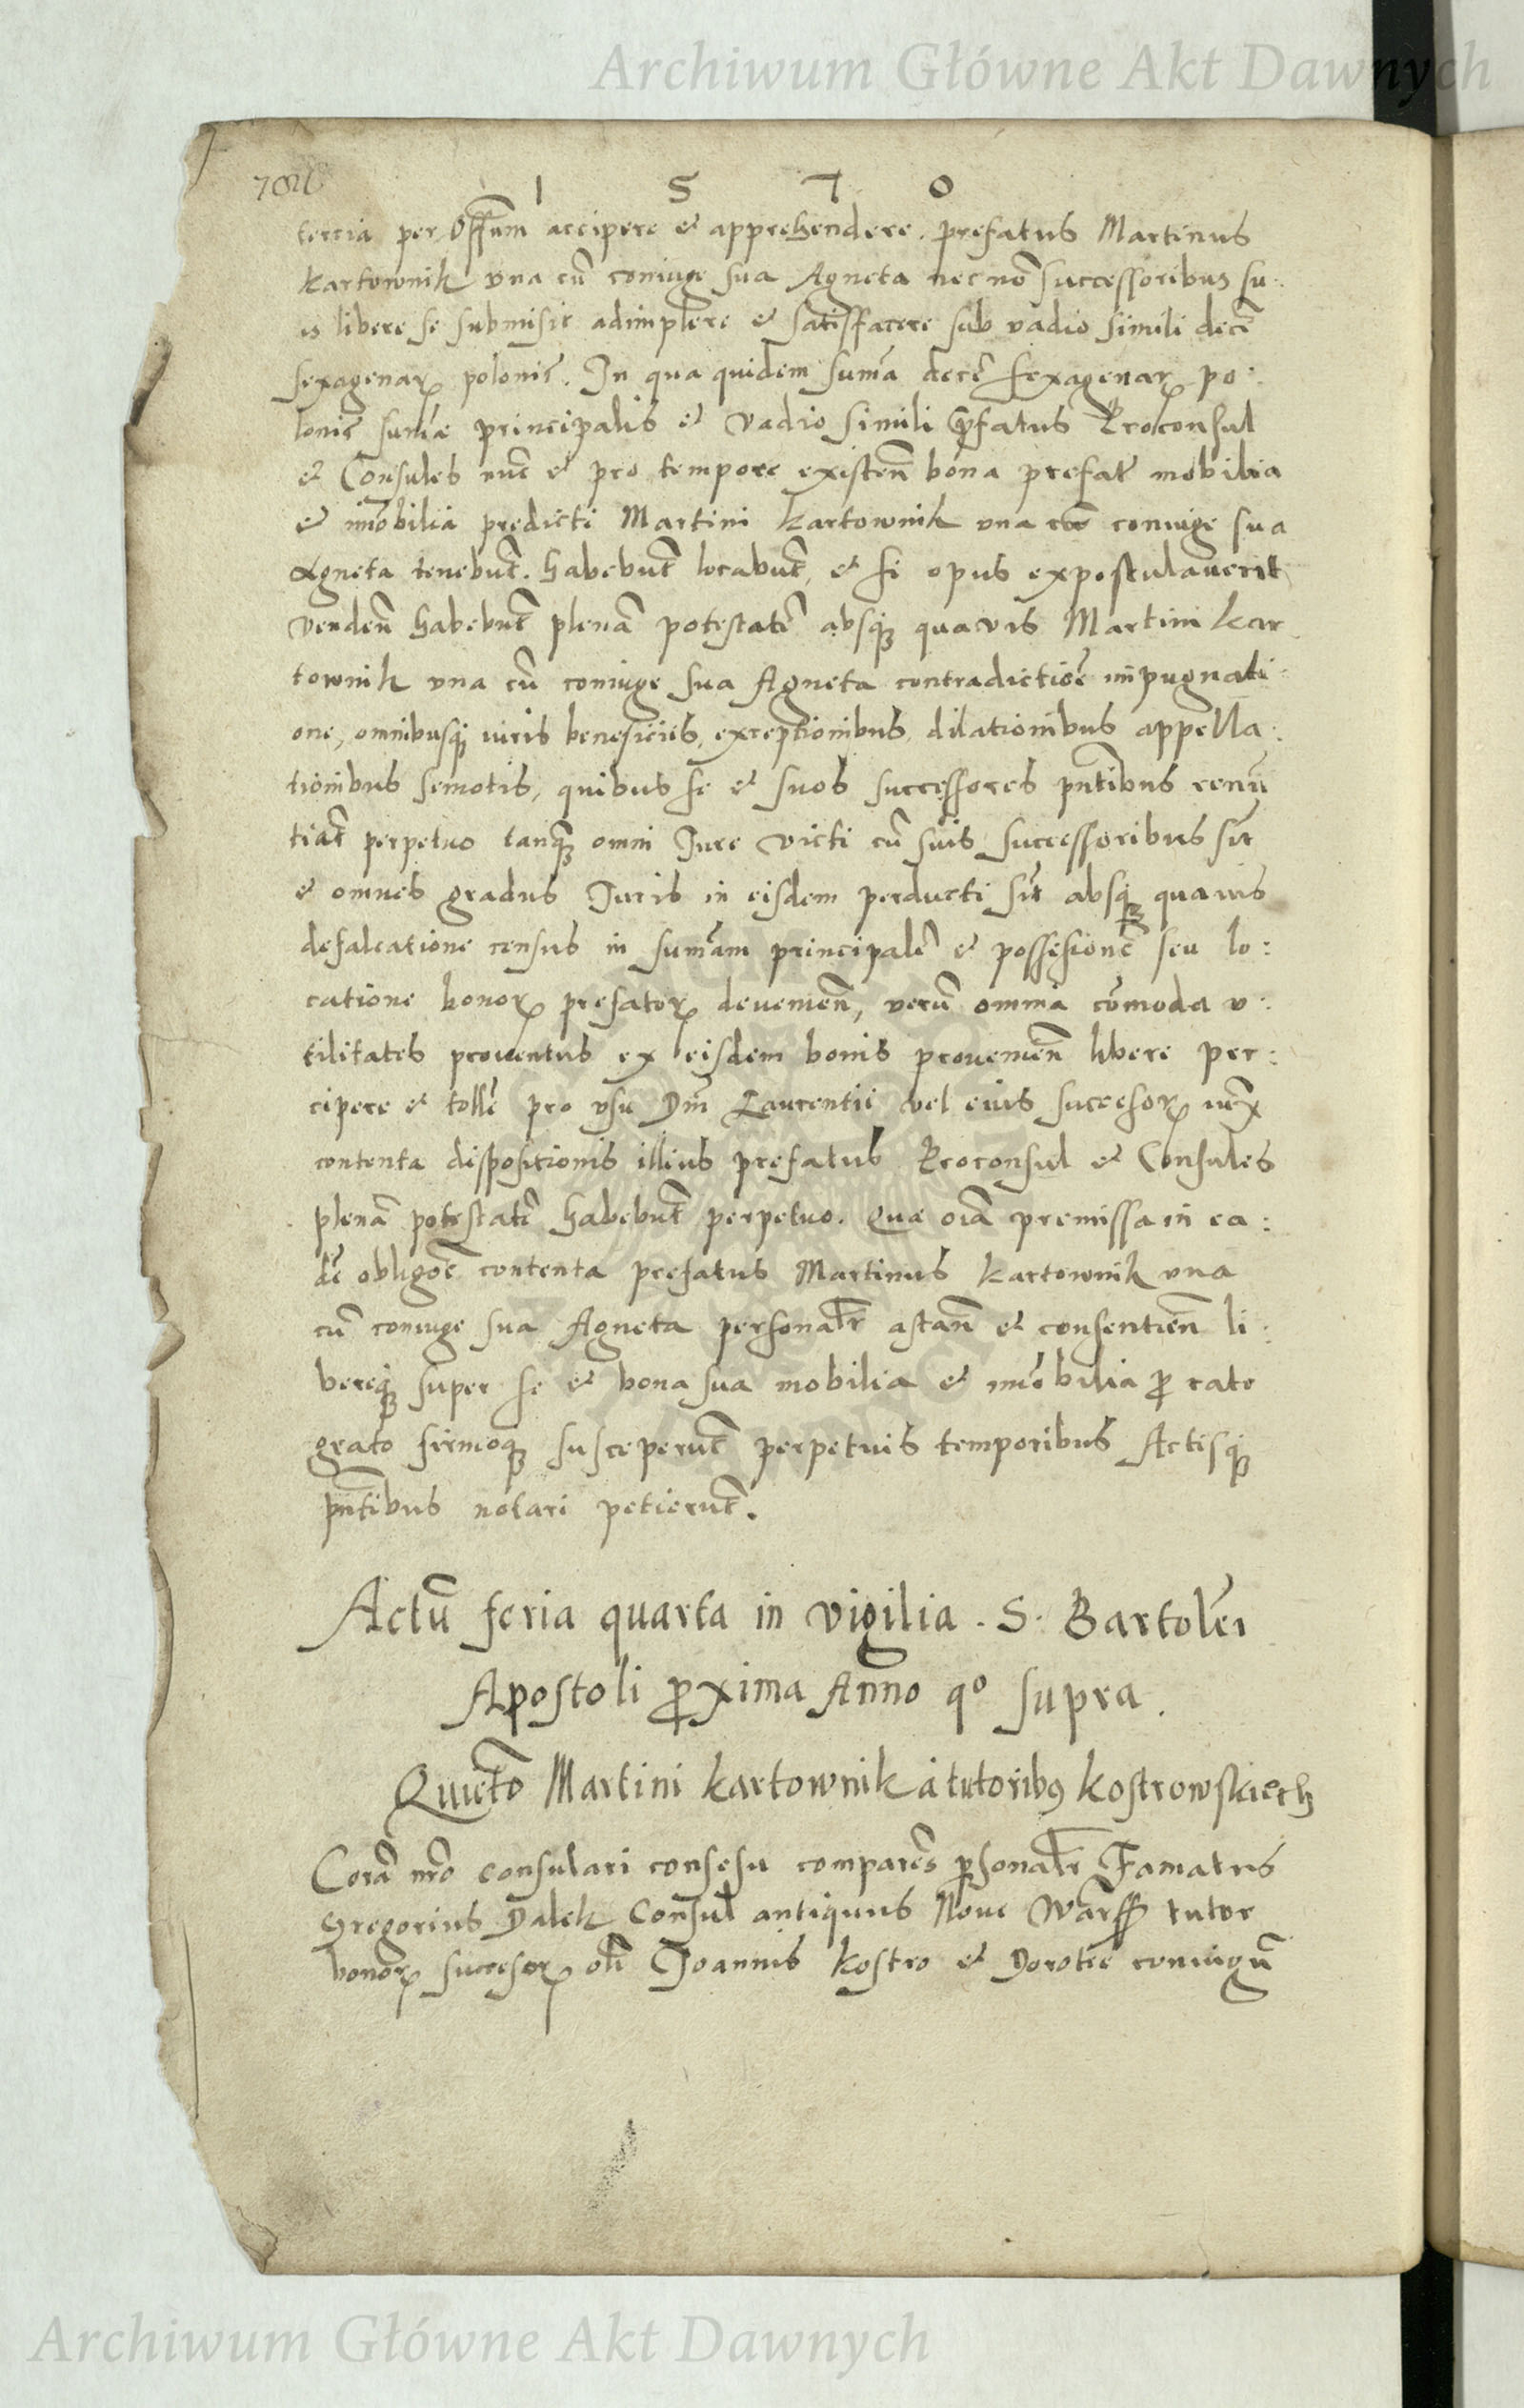 Archiwum Główne Akt Dawnych
1 5 7 0
tercia per Offium accipere et apprehendere. prefatus Martinus
Kartownik vna cū coniuge sua Agneta nec nō successoribus su:
is libere se submisit adimplere et satisffacere sub vadio simili decē
sexagenarꝝ polonis. In qua quidem sumā decē sexagenarꝝ po:
lonis sumæ principalis et vadio simili p̄fatus Proconsul
et Consules nūc et pro tempore existeñ bona prefat mobilia
et imōbilia predicti Martini Kartownik vna cū coniuge sua
Agneta tenebūt. habebūt locabūt, et si opus expostulauerit
vendeñ habebūt plenā potestatē absqꝫ quavis Martini Kar
townik vna cū coniuge sua Agneta contradictioē impugnati:
one, omnibusqꝫ iuris beneficiis, exceptionibus, dilationibus appella:
tionibus semotis, quibus se et suos successores pñtibus renū
tiāt perpetuo tanqꝫ omni Jure victi cū suis successoribus sūt
et omnes gradus Juris in eisdem perducti sūt absqꝫ quauis
defalcatione census in sumam principalē et possesionē seu lo:
catione bonorꝝ prefatorꝝ deuenieñ, verū omnia cōmoda v:
tilitates prouentus ex eisdem bonis prouenieñ libere per:
cipere et tollē pro vsu Dm̄ Laurentii vel eius succesorꝝ
contenta dispositionis illius prefatus Proconsul et Consules
plenā potestatē habebūt perpetuo. Quæ oīa premissa in ea:
dē obligōe contenta prefatus Martinus Kartownik vna
cū coniuge sua Agneta personalr astañ et consentieñ li:
bereqꝫ super se et bona sua mobilia et imōbilia ꝓ rato
grato firmoqꝫ susceperūt perpetuis temporibus Actisqꝫ
pñtibus notari petierūt.
Actū feria quarta in vigilia. S. Bartolēi
Apostoli ꝓxima Anno qº supra.
Quietō Martini Kartownik à tutoribꝰ Kostrowskiech
Corā nr̄o consulari consesu comparēs ꝑsonalr Famatus
Gregorius Dalek Consul antiquus Noue Warsß tutor
bonorꝝ succesorꝝ olī Joannis Kostro et Dorotee coniugū
Archiwum Główne Akt Dawnych